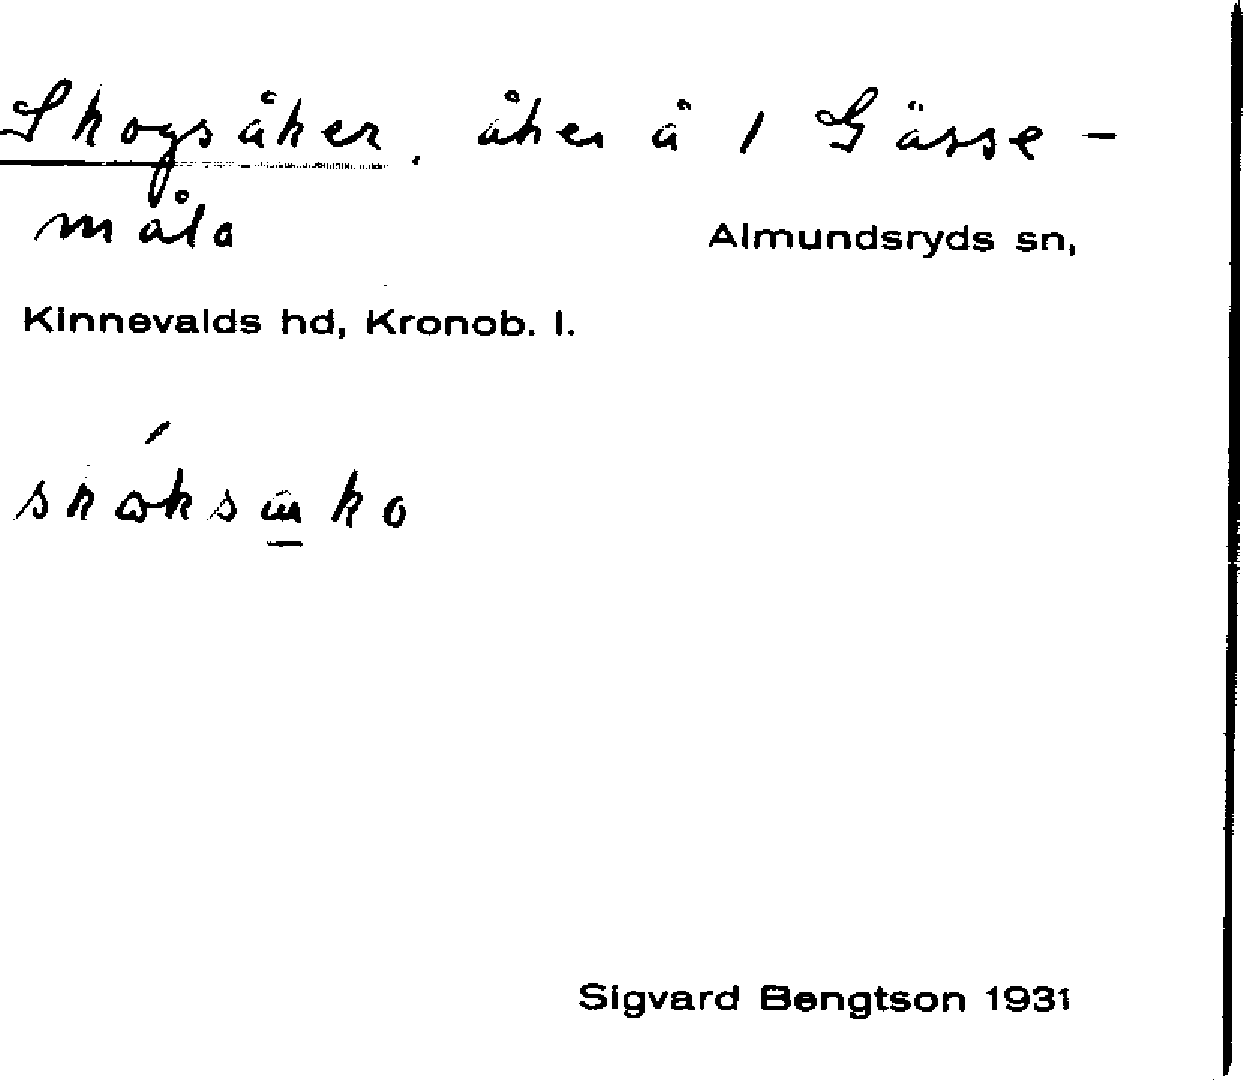 Skogsåker. åker å 1 Gässe-
måla
Almundsryds sn,
Kinnevalds hd, Kronob. l.
Sigvard Bengtson 1931